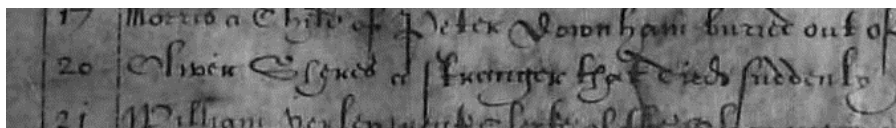 17 Morris a Child of Peter Downham buried out of
20 Oliver Shyres a stranger that died suddenly
21 William